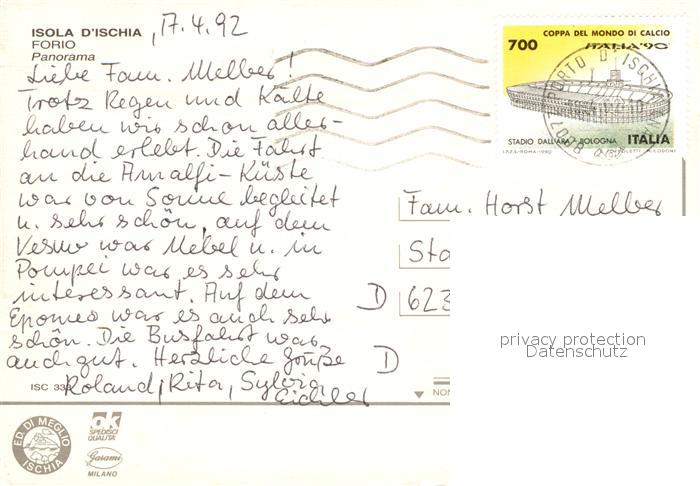 ISOLA D'ISCHIA , 17.4.92
FORIO
Panorama
Liebe Fam. Melber!
Trotz Regen und Kälte
haben wir schon aller-
hand erlebt. Die Fahrt
an die Amalfi-Küste
war von Sonne begleitet
u. sehr schön, auf dem
Vesuv war Nebel u. in
Pompei war es sehr
interessant. Auf dem
Epomeo war es auch sehr
schön. Die Busfahrt war
auch gut. Herzliche Grüße
Roland, Rita, Sylvia
Eichler
ISC 33
ED. DI MEGLIO
ISCHIA
OK
SPEDISCI
QUALITÀ
Garami
MILANO
700 COPPA DEL MONDO DI CALCIO
ITALIA'90
STADIO DALL'ARA - BOLOGNA ITALIA
I.P.Z.S. - ROMA - 1990
PORTO D'ISCHIA
Fam. Horst Melber
Sta
D 623
D
NON
privacy protection
Datenschutz